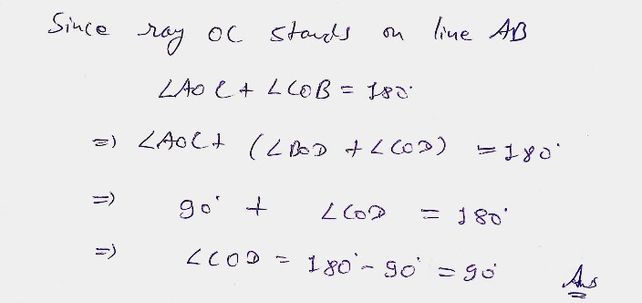 Since ray OC stands on line AB
∠AOC + ∠COB = 180°
⇒) ∠AOC + (∠BOD + ∠COD) = 180°
⇒) 90° + ∠COD = 180°
⇒) ∠COD = 180° - 90° = 90° Ans